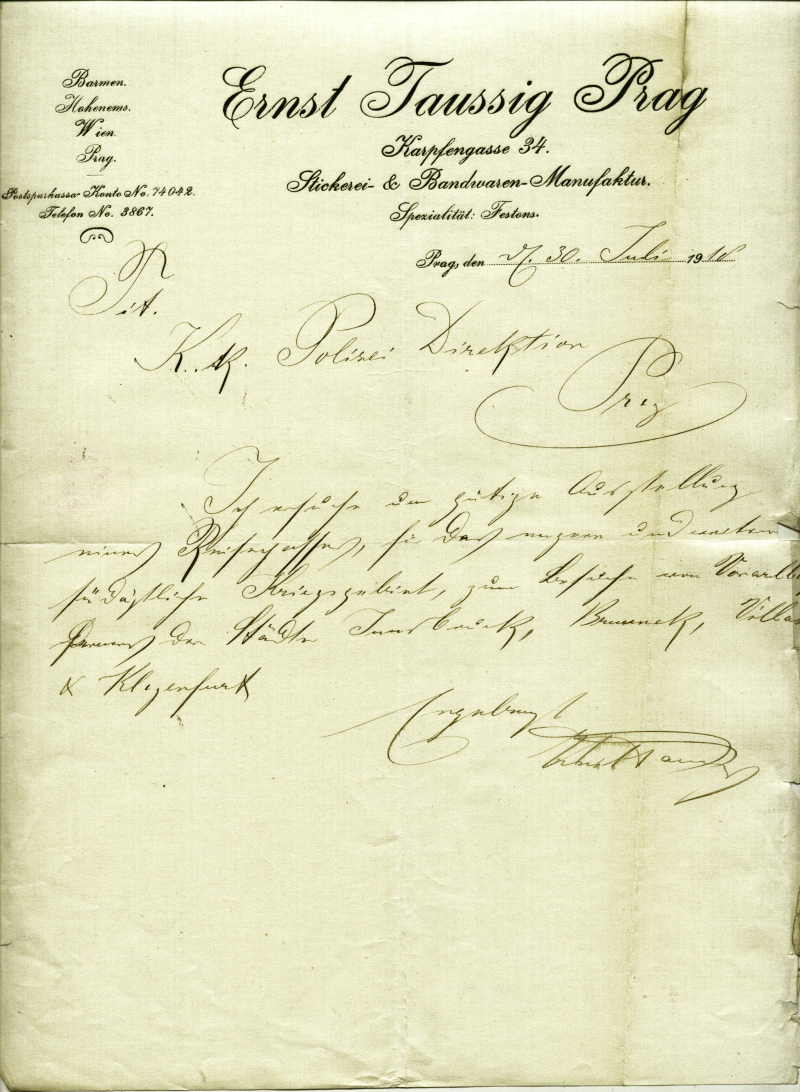 Barmen.
Hohenems.
Wien.
Prag.
Postsparkassa-Konto No. 74042.
Telefon No. 3867.
Ernst Taussig Prag
Karpfengasse 34.
Stickerei- & Bandwaren-Manufaktur.
Spezialität: Festons.
Prag, den 30. Juli 1918
Tit.
K. k. Polizei Direktion
Prag
Ich ersuche um gütige Ausstellung
eines Reisepasses, für das engere und weitere
südöstliche Kriegsgebiet, zum Besuche von Vorarlb
der Städte Innsbruck, Bruneck, Villa
& Klagenfurt
Ergebenst
Ernst Taussig